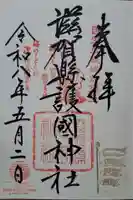 奉拝
滋賀縣護國神社
令和八年五月二日